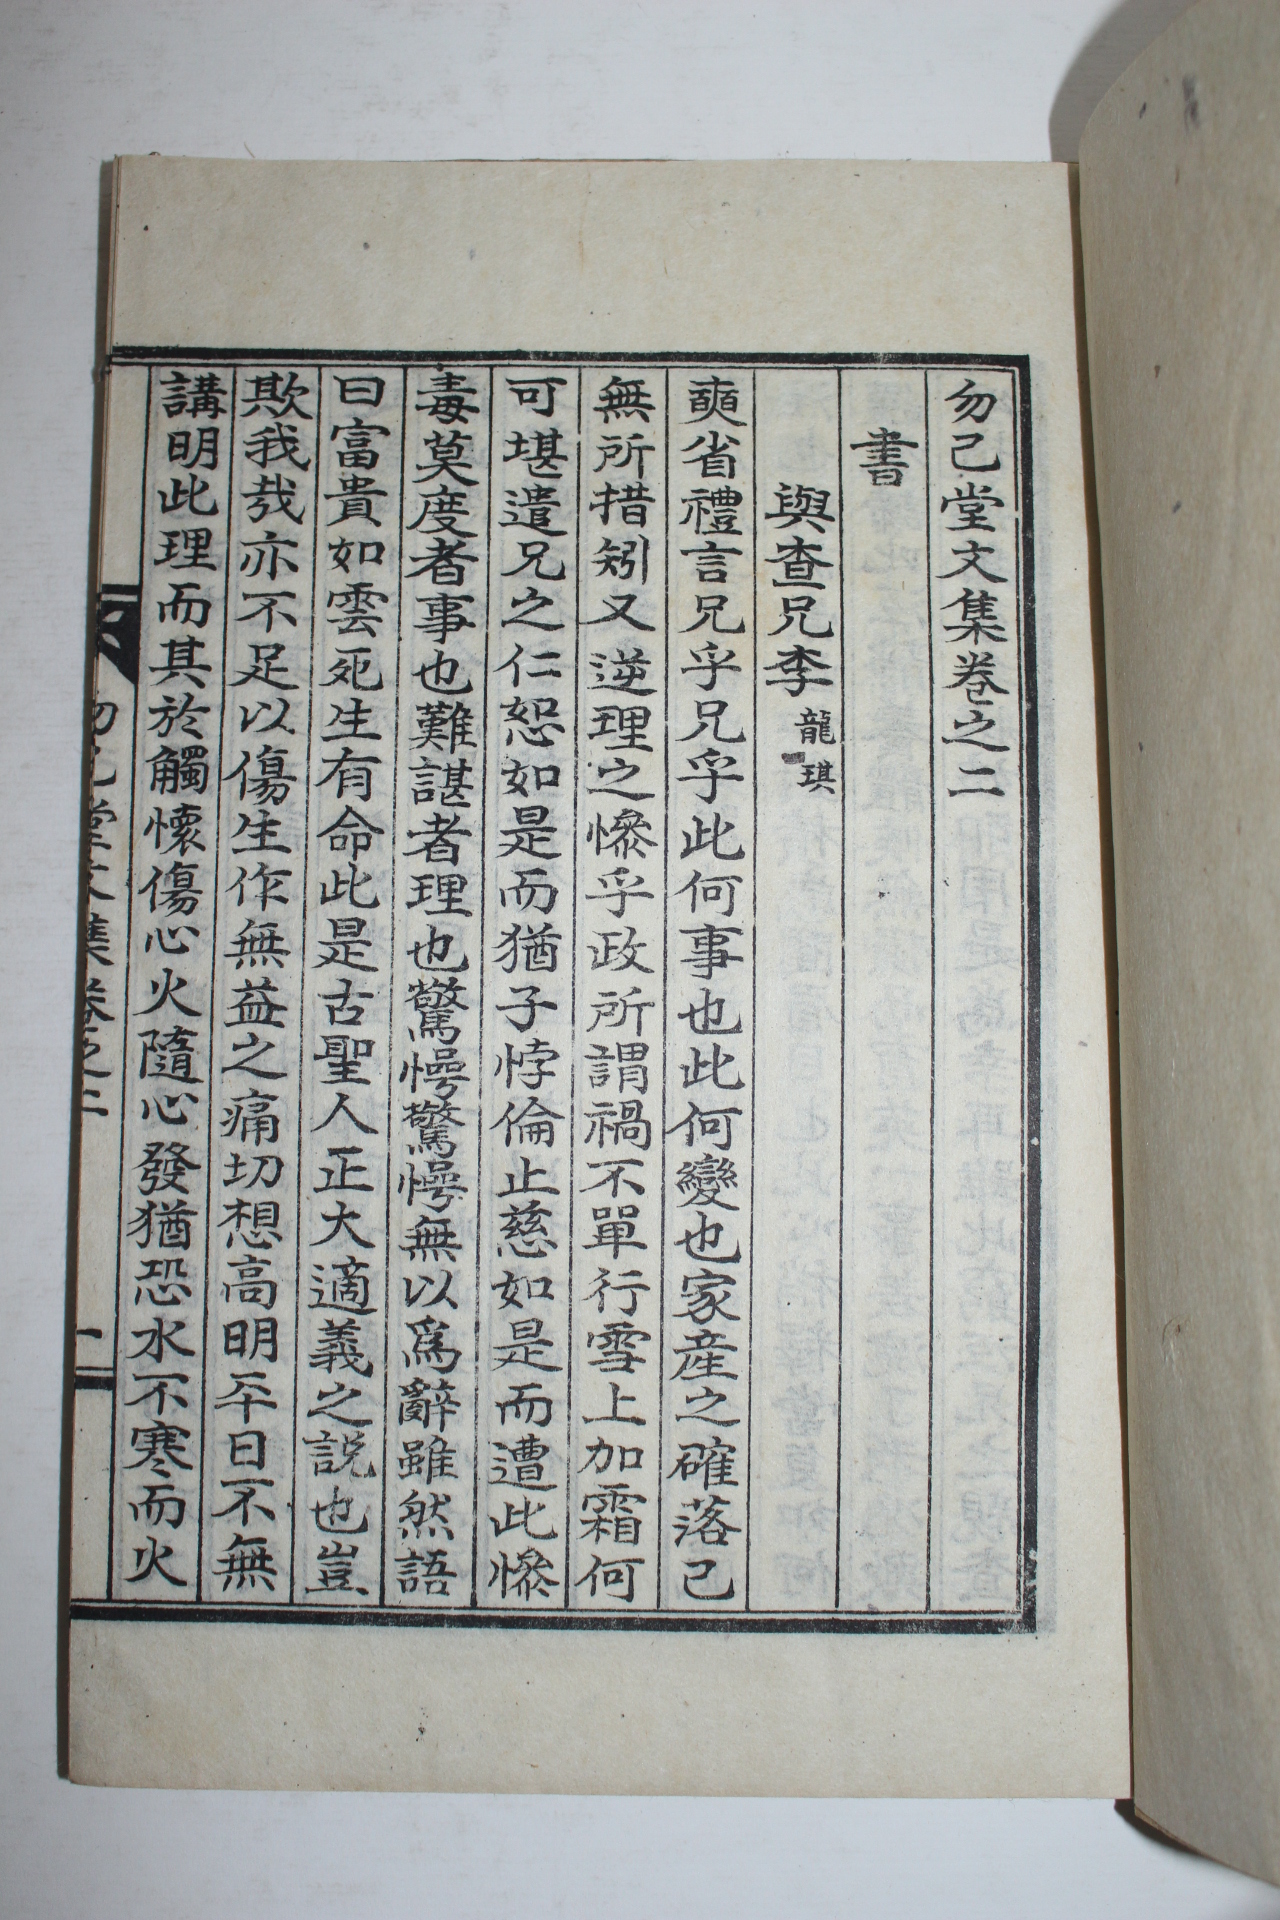 勿己堂文集卷之二
書
與査兄李龍琪
奭省禮言兄乎兄乎此何事也此何變也家産之確落已
無所措矧又逆理之慘乎政所謂禍不單行雪上加霜何
可堪遣兄之仁恕如是而猶子悖倫止慈如是而遭此慘
毒莫度者事也難諶者理也驚愕驚愕無以爲辭雖然語
曰富貴如雲死生有命此是古聖人正大適義之説也豈
欺我㦲亦不足以傷生作無益之痛切想高明平日不無
講明此理而其於觸懷傷心火隨心發猶恐水不寒而火
勿己堂文集卷之二
一